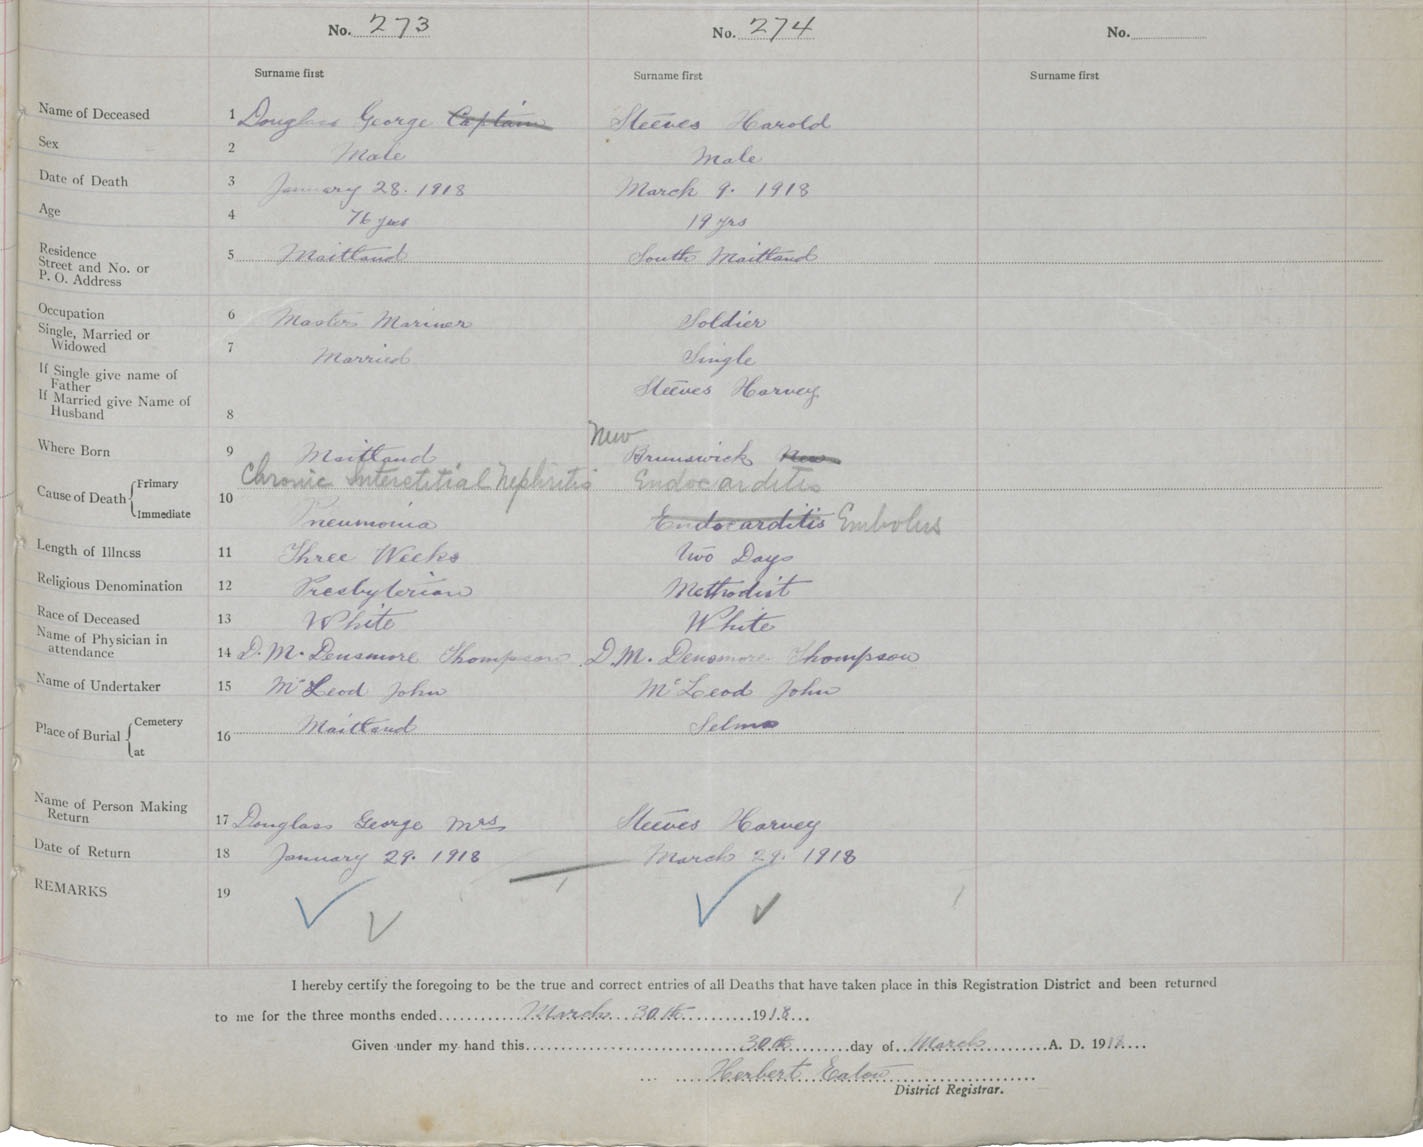 No. 273 No. 274 No.
Surname first Surname first Surname first
Name of Deceased 1 Douglass George Captain Steeves Harold
Sex 2 Male Male
Date of Death 3 January 28. 1918 March 9. 1918
Age 4 76 yrs 19 yrs
Residence
Street and No. or 5 Maitland South Maitland
P. O. Address
Occupation 6 Master Mariner Soldier
Single, Married or
Widowed 7 Married Single
If Single give name of
Father Steeves Harvey
If Married give Name of
Husband 8
New
Where Born 9 Maitland Brunswick New
Cause of Death Primary Chronic Interstitial Nephritis Endocarditis
10
Immediate Pneumonia Endocarditis Embolus
Length of Illness 11 Three Weeks Two Days
Religious Denomination 12 Presbyterian Methodist
Race of Deceased 13 White White
Name of Physician in
attendance 14 D. M. Densmore Thompson D. M. Densmore Thompson
Name of Undertaker 15 McLeod John McLeod John
Place of Burial Cemetery Maitland Selma
at 16
Name of Person Making
Return 17 Douglass George Mrs Steeves Harvey
Date of Return 18 January 29. 1918 March 29. 1918
REMARKS 19
I hereby certify the foregoing to be the true and correct entries of all Deaths that have taken place in this Registration District and been returned
to me for the three months ended March 30th 1918
Given under my hand this 30th day of March A. D. 1918
Herbert Eaton
District Registrar.